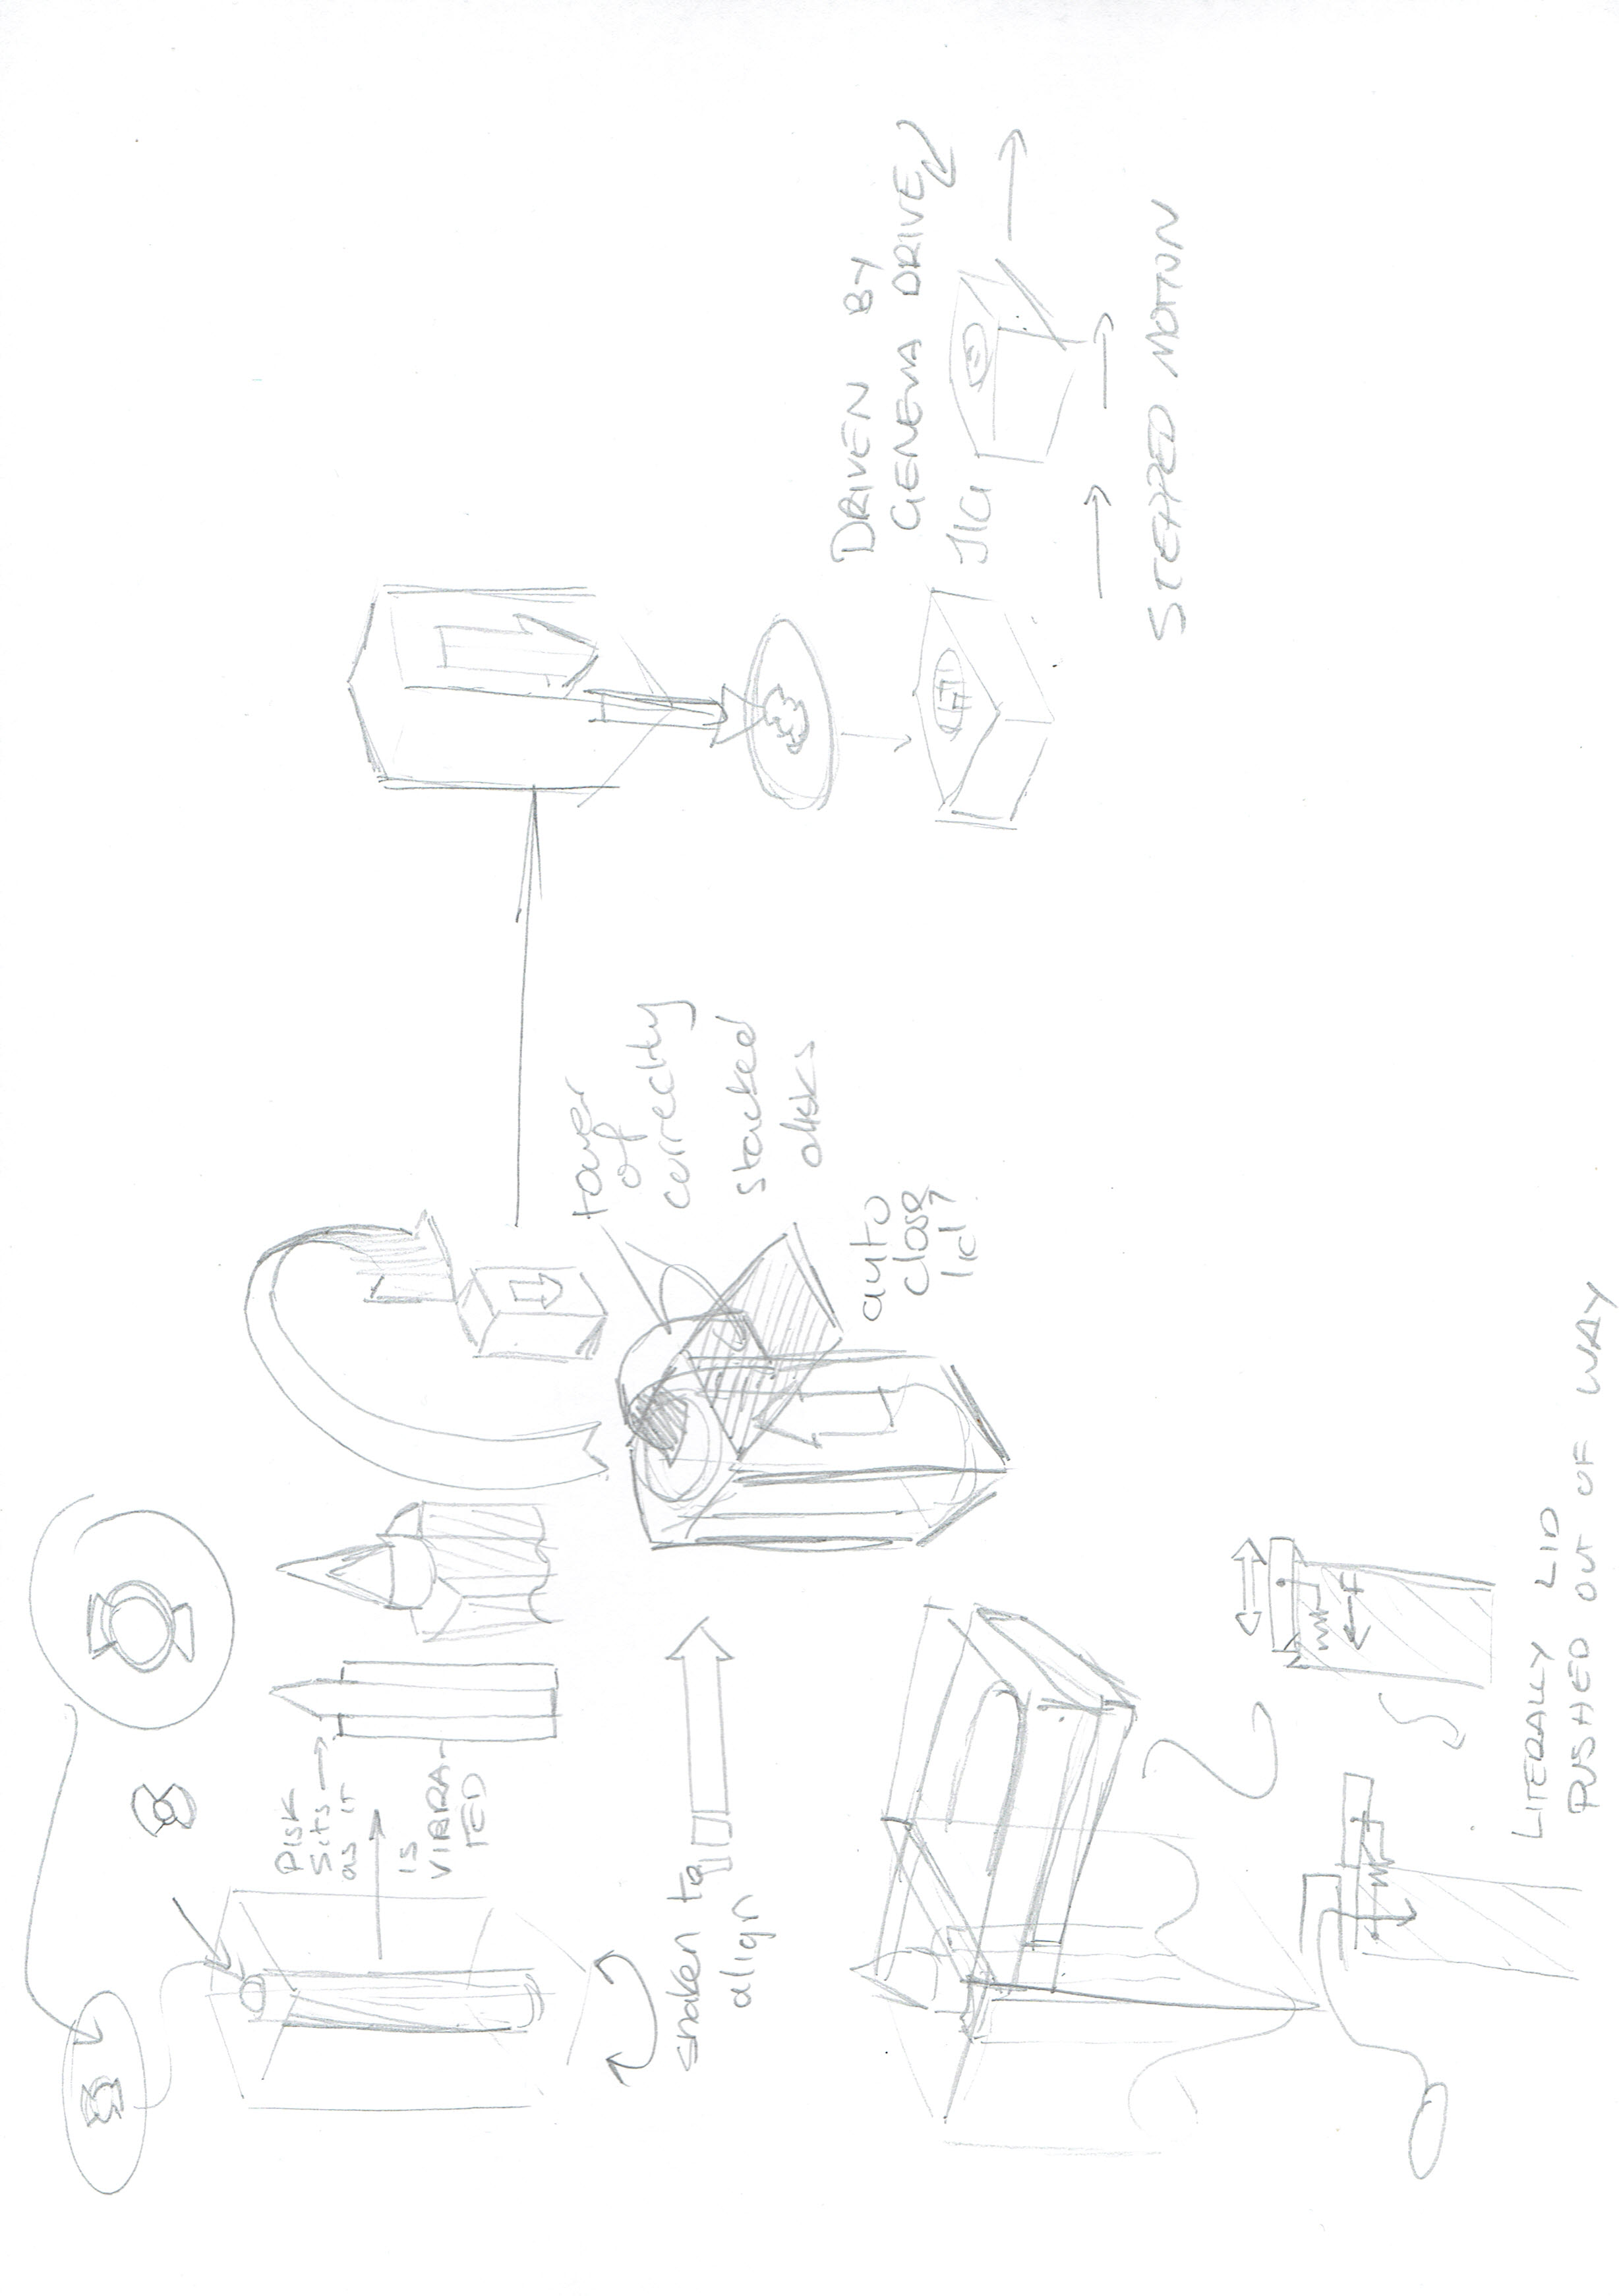 DISK
sits
as it
is
VIBRA-
TED
shaken to
align
tower
of
correctly
stacked
disks
auto
close
lid?
DRIVEN BY
GENEVA DRIVE
JIG
STEPPED MOTION
F
LITERALLY LID
PUSHED OUT OF WAY